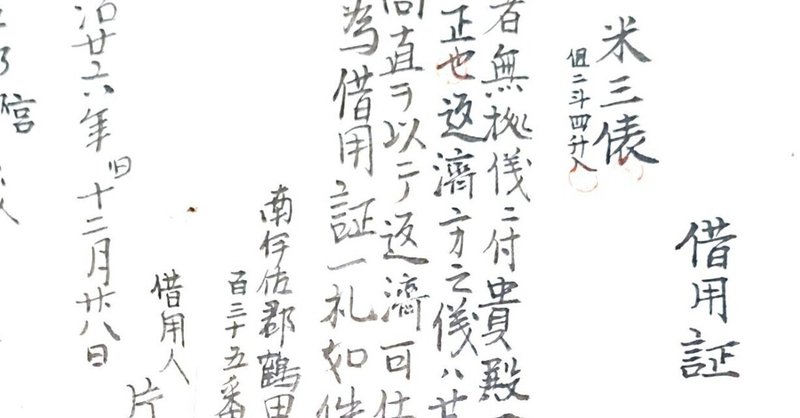 借用証
米三俵
但二斗四升入
者無拠儀ニ付貴殿
正也返済方之儀ハ廿
直ヲ以テ返済可仕
為借用証一札如件
南伊佐郡鶴田
百三十五番
借用人
片
治廿六年旧十二月廿八日